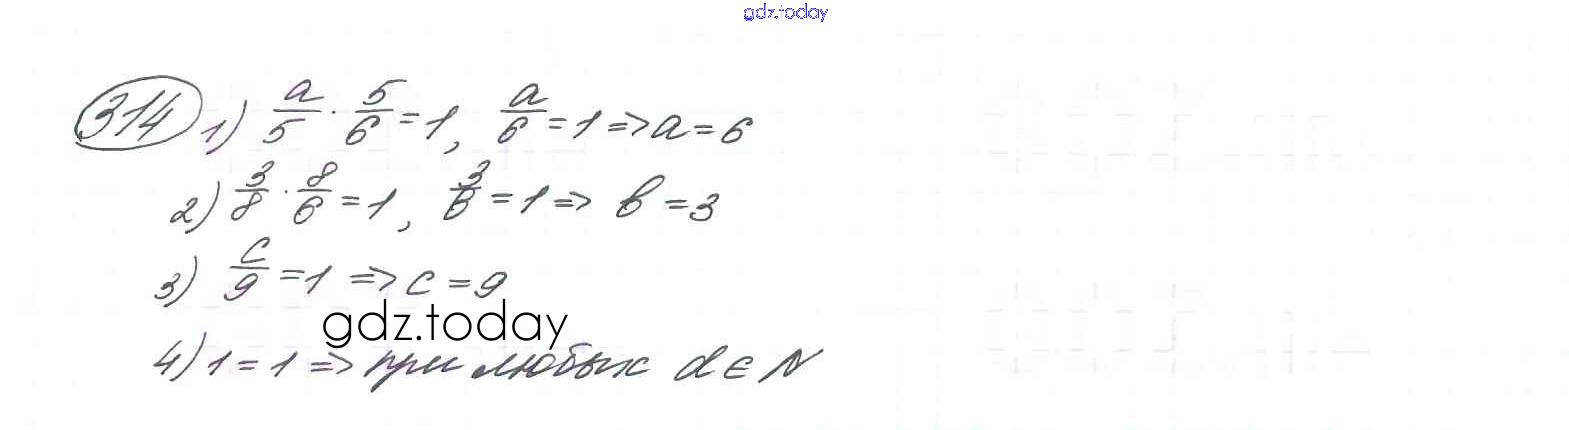 gdz.today
314 1) a/5 · 5/6 = 1, a/6 = 1 => a = 6
2) 3/8 · 8/в = 1, 3/в = 1 => в = 3
3) c/9 = 1 => c = 9
gdz.today
4) 1 = 1 => при любых d ∈ N